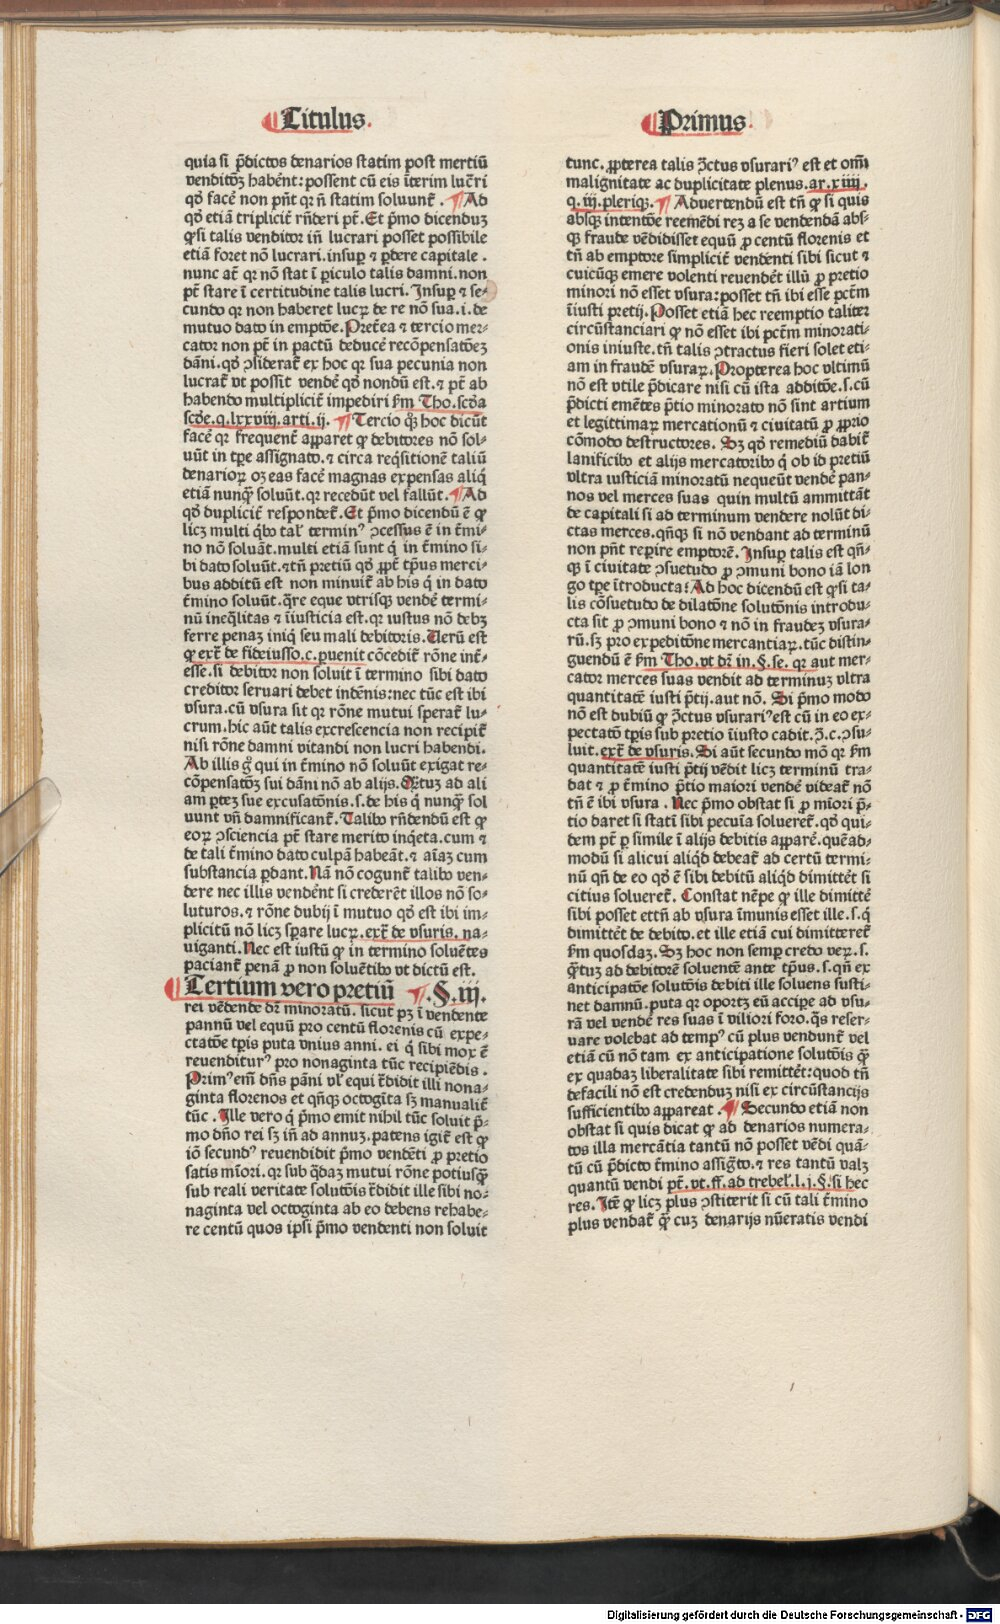 Titulus.
quia si p̄dictos denarios statim post mertiū
venditōꝫ habēnt: possent cū eis īterim lucͬri
qḋ facͤ non pn̄t qꝛ n̄ statim soluunt᷑. ¶ Ad
qḋ etiā triplicit᷑ rn̄deri pt̄. Et pͥmo dicenduꝫ
ꝙ si talis venditor in̄ lucrari posset possibile
etiā foret nō lucrari. insuꝑ ⁊ ꝑdere capitale.
nunc at̄ qꝛ nō stat ī ꝑiculo talis damni. non
pt̄ stare ī certitudine talis lucri. Insuꝑ ⁊ se⸗
cundo qꝛ non haberet lucꝝ de re nō sua. i. de
mutuo dato in emptōe. Pret᷑ea ⁊ tercio mer⸗
cator non pt̄ in pactū deducͤ recōpensatōeꝫ
dāni. qḋ ↄsiderat᷑ ex hoc qꝛ sua pecunia non
lucrat᷑ vt possit vendͤ qḋ nondū est. ⁊ pt̄ ab
habendo multiplicit᷑ impediri ẜm Tho. scḋa
scḋe. q. lxxviij. arti. ij. ¶ Tercio qͥ hoc dicūt
facͤ qꝛ frequent᷑ apparet ꝙ debitores nō sol⸗
uūt in tꝑe assignato. ⁊ circa reqͥsitionē taliū
denarioꝝ oꝫ eas facͤ magnas expensas aliqͥ
etiā nunqͣꝫ soluūt. qꝛ recedūt vel fallūt. ¶ Ad
qḋ duplicit᷑ respondet᷑. Et pͥmo dicendū ē ꝙ
licꝫ multi qͥbꝰ tal' terminꝰ ↄcessus ē in t᷑mi⸗
no nō soluāt. multi etiā sunt qͥ in t᷑mino si⸗
bi dato soluūt. ⁊ tn̄ pretiū qḋ ꝓpt᷑ tp̄us merci⸗
bus additū est non minuit᷑ ab his qͥ in dato
t᷑mino soluūt. qͣre eque vtrisqꝫ vendͤ termi⸗
nū ineqͣlitas ⁊ īiusticia est. qꝛ iustus nō debꝫ
ferre penaꝫ iniqͥ seu mali debitoris. Verū est
ꝙ ext᷑ de fideiusso. c. ꝑuenit cōcedit᷑ rōne int᷑⸗
esse. si debitor non soluit ī termino sibi dato
creditor seruari debet indēnis: nec tūc est ibi
vsura. cū vsura sit qꝛ rōne mutui sperat᷑ lu⸗
crum. hic aūt talis excrescencia non recipit᷑
nisi rōne damni vitandi non lucri habendi.
Ab illis gͦ qui in t᷑mino nō soluūt exigat re⸗
cōpensatōꝫ sui dāni nō ab alijs. Ortuꝫ ad ali
am ꝑteꝫ sue excusatōnis. s. de his qͥ nunqͣꝫ sol
uunt vn̄ damnificant᷑. Talibꝰ rn̄dendū est ꝙ
eoꝝ ↄsciencia pt̄ stare merito inqͥeta. cum ⁊
de tali t᷑mino dato culpā habeāt. ⁊ aīaꝫ cum
substancia ꝑdant. Nā nō cogunt᷑ talibꝰ ven⸗
dere nec illis vendēnt si crederēt illos nō so⸗
luturos. ⁊ rōne dubij ī mutuo qḋ est ibi im⸗
plicitū nō licꝫ sꝑare lucꝝ. ext᷑ de vsuris. na⸗
uiganti. Nec est iustū ꝙ in termino soluētes
paciant᷑ penā ꝓ non soluētibꝰ vt dictū est.
Tertium vero pretiū ¶ .§. iij.
rei vēdende dꝛ minoratū. sicut pꝫ ī vendente
pannū vel equū pro centū florenis cū expe⸗
ctatōe tꝑis puta vnius anni. ei qͥ sibi mox ē
reuenditurꝰ pro nonaginta tūc recipiēdis.
Primꝰ em̄ dn̄s pāni vl' equi t᷑didit illi nona⸗
ginta florenos et qn̄qꝫ octogīta sꝫ manualit᷑
tūc. Ille vero qͥ pͥmo emit nihil tūc soluit pͥ⸗
mo dn̄o rei sꝫ in̄ ad annuꝫ. patens igit᷑ est ꝙ
iō secundꝰ reuendidit pͥmo vendēti ꝓ pretio
satis mīori. qꝛ sub qͣdaꝫ mutui rōne potiusqͣꝫ
sub reali veritate solutōis t᷑didit ille sibi no⸗
naginta vel octoginta ab eo debens rehabe⸗
re centū quos ipsi pͥmo vendenti non soluit
Primus.
tunc. ꝓpterea talis ↄ̄ctus vsurariꝰ est et om̄i
malignitate ac duplicitate plenus. ar. xiiij.
q. iij. pleriqꝫ. ¶ Aduertendū est tn̄ ꝙ si quis
absqꝫ intentōe reemēdi reꝫ a se vendendā abs⸗
qꝫ fraude vēdidisset equū ꝓ centū florenis et
tn̄ ab emptore simplicit᷑ vendenti sibi sicut ⁊
cuicūqꝫ emere volenti reuendēt illū ꝓ pretio
minori nō esset vsura: posset tn̄ ibi esse pctm̄
īiusti pretij. Posset etiā hec reemptio taliter
circūstanciari ꝙ nō esset ibi pctm̄ minorati⸗
onis iniuste. tn̄ talis ↄtractus fieri solet eti⸗
am in fraudē vsuraꝝ. Propterea hoc vltimū
nō est vtile p̄dicare nisi cū ista additōe. s. cū
p̄dicti emētes p̄tio minorato nō sint artium
et legittimaꝝ mercationū ⁊ ciuitatū ꝓ ꝓprio
cōmodo destructores. Sꝫ qḋ remediū dabit᷑
lanificibꝰ et alijs mercatoribꝰ qͥ ob id pretiū
vltra iusticiā minoratū nequeūt vendͤ pan⸗
nos vel merces suas quin multū ammittāt
de capitali si ad terminum vendere nolūt di⸗
ctas merces. qn̄qꝫ si nō vendant ad terminū
non pn̄t reꝑire emptorē. Insuꝑ talis est qn̄⸗
qꝫ ī ciuitate ↄsuetudo ꝓ ↄmuni bono iā lon
go tꝑe ītroducta: Ad hoc dicendū est ꝙ si ta⸗
lis cōsuetudo de dilatōne solutōnis introdu⸗
cta sit ꝓ ↄmuni bono ⁊ nō in fraudeꝫ vsura⸗
rū. sꝫ pro expeditōne mercantiaꝝ. tūc distin⸗
guendū ē ẜm Tho. vt dꝛ in. §. se. qꝛ aut mer⸗
cator merces suas vendit ad terminuꝫ vltra
quantitatē iusti p̄tij. aut nō. Si pͥmo modo
nō est dubiū ꝙ ↄ̄ctus vsurariꝰ est cū in eo ex⸗
pectatō tꝑis sub pretio īiusto cadit. ↄ̄. c. ↄsu⸗
luit. ext᷑ de vsuris. Si aūt secundo mō qꝛ ẜm
quantitatē iusti p̄tij vēdit licꝫ terminū tra⸗
dat ⁊ ꝓ t᷑mino p̄tio maiori vendͤ videat᷑ nō
tn̄ ē ibi vsura. Nec pͥmo obstat si ꝓ mīori p̄⸗
tio daret si statī sibi pecuīa solueret᷑. qḋ qui⸗
dem pt̄ ꝑ simile ī alijs debitis apparē. quēad⸗
modū si alicui aliqͥd debeat᷑ ad certū termi⸗
nū qn̄ de eo qḋ ē sibi debitū aliqͥd dimittēt si
citius solueret᷑. Constat nēpe ꝙ ille dimittē
sibi posset ettn̄ ab vsura īmunis esset ille. s. qͥ
dimittēt de debito. et ille etiā cui dimitteret᷑
ẜm quosdaꝫ. Sꝫ hoc non semꝑ credo veꝝ. s.
qͣꝫtuꝫ ad debitorē soluentē ante tp̄us. s. qn̄ ex
anticipatōe solutōis debiti ille soluens susti⸗
net damnū. puta qꝛ oportꝫ eū accipe ad vsu⸗
rā vel vendͤ res suas ī viliori foro. qͣs reser⸗
uare volebat ad tempꝰ cū plus vendunt᷑ vel
etiā cū nō tam ex anticipatione solutōis qͣꝫ
ex quadaꝫ liberalitate sibi remittēt: quod tn̄
defacili nō est credenduꝫ nisi ex circūstancijs
sufficientibꝰ appareat. ¶ Secundo etiā non
obstat si quis dicat ꝙ ad denarios numera⸗
tos illa mercātia tantū nō posset vēdi quā⸗
tū cū p̄dicto t᷑mino assigͣto. ⁊ res tantū valꝫ
quantū vendi pt̄. vt. ff. ad trebel'. l. j. §. si hec
res. Itē ꝙ licꝫ plus ↄstiterit si cū tali t᷑mino
plus vendat᷑ qͣꝫ cuꝫ denarijs nūeratis vendi
Digitalisierung gefördert durch die Deutsche Forschungsgemeinschaft - DFG